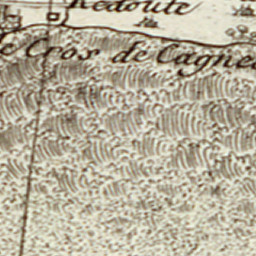 Redoute
Cros de Cagnes